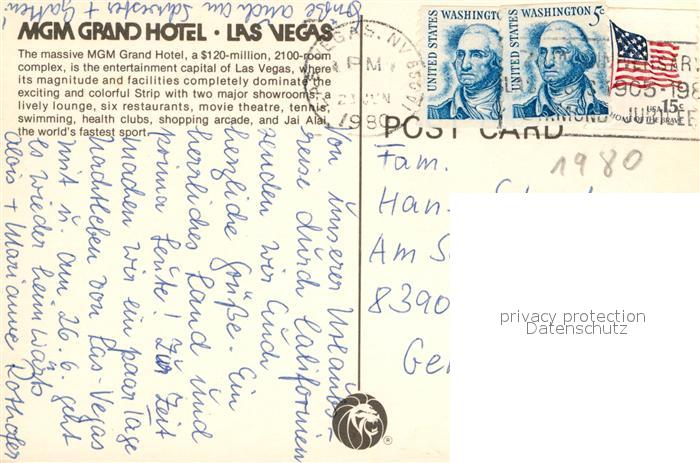 MGM GRAND HOTEL · LAS VEGAS
The massive MGM Grand Hotel, a $120-million, 2100-room
complex, is the entertainment capital of Las Vegas, where
its magnitude and facilities completely dominate the
exciting and colorful Strip with two major showrooms, a
lively lounge, six restaurants, movie theatre, tennis,
swimming, health clubs, shopping arcade, and Jai Alai,
the world's fastest sport.
Grüße auch an Schwester + Gatten!
Von unserer Urlaubs-
reise durch Californien
senden wir Euch
herzliche Grüße. Ein
herrliches Land und
prima Leute! Zur Zeit
machen wir ein paar Tage
Nachtleben von Las-Vegas
mit u. am 26.6. geht
es wieder heimwärts
Alois + Marianne
UNITED STATES
WASHINGTON
UNITED STATES
WASHINGTON 5c
USA 15c
HOME OF THE BRAVE
VEGAS, NV
PM
JUN
1980
1905-198
JUBILEE
POST CARD
1980
Fam.
Han
Am S
8390
Ger
privacy protection
Datenschutz
®